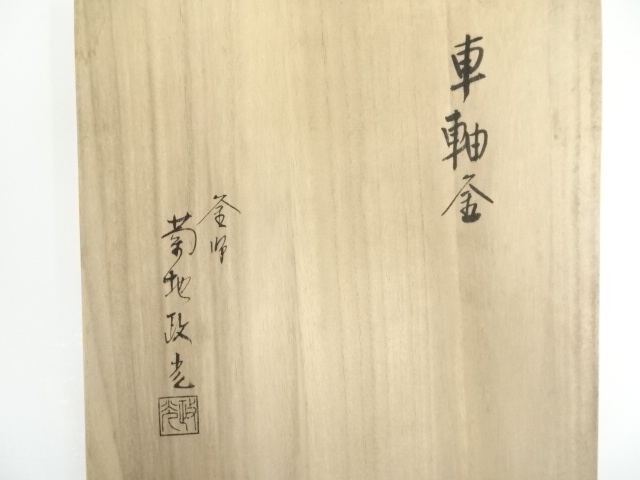 車軸釜
釜師
菊地政光
政光